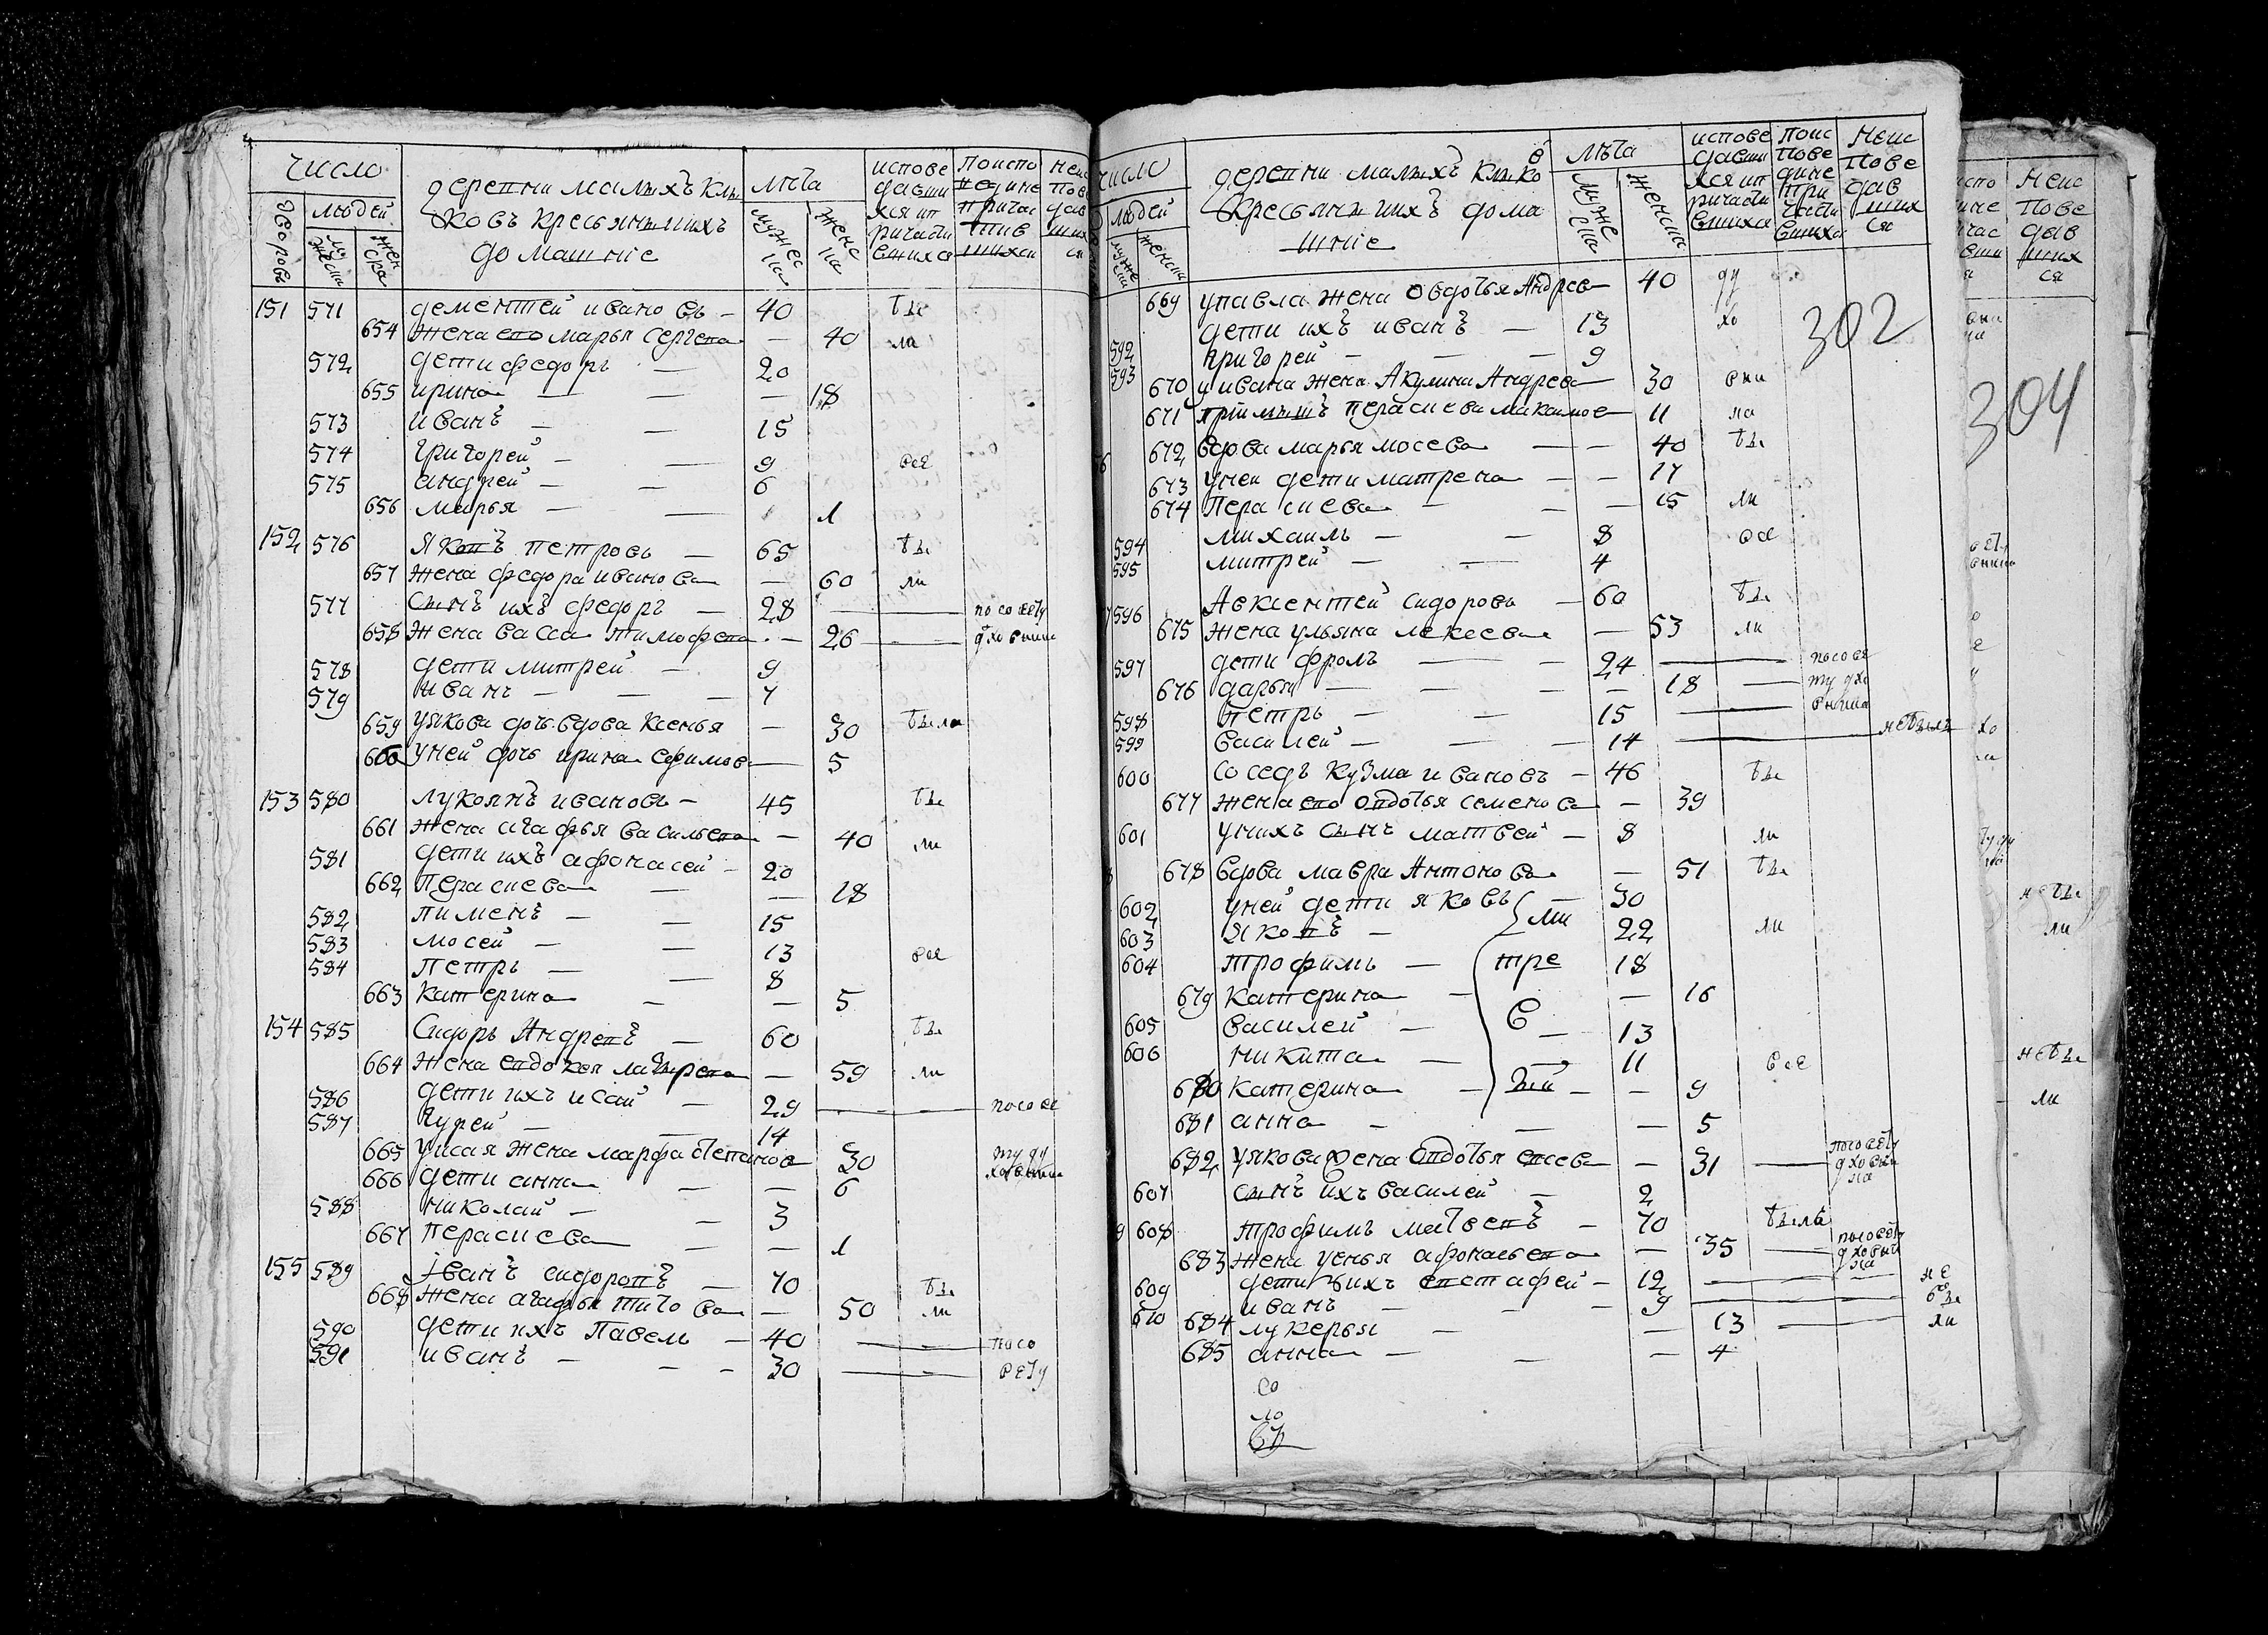 число
деревни малыхъ клы
ковъ крестьянъ и ихъ
домашніе
лѣта
испове
давши
хся и п
ричасти
вшихся
поиспо
ведине
причас
тив
шихся
дворовъ
людей
мужеска
женска
мужес
ка
женс
ка
151 571 дементей ивановъ — 40 бы
654 жена ево марья сергева — 40 ли
572 дети федоръ — 20
655 ирина — — — 18
573 иванъ — — 15
574 григорей — — 9 все
575 андрей — — 6
656 марья — — 1
152 576 Яковъ петровъ — 65 бы
657 жена федора иванова — 60 ли
577 сынъ ихъ федоръ — 28 — по совету
658 жена васса тимофева — 26 — дховника
578 дети митрей — 9
579 иванъ — — — 7
659 уякова дочь вдова ксенья — 30 была
660 уней дочь ирина ефимова — 5
153 580 лукоянъ ивановъ — 45 бы
661 жена агафья васильева — 40 ли
581 дети ихъ афонасей — 20
662 Перасчева — — 18
582 пименъ — — 15
583 мосей — — 13 все
584 петръ — — 8
663 катерина — — 5
154 585 Сидоръ Андревъ — 60 бы
664 жена евдокея — 59 ли
586 дети ихъ исай — 29 — по сове
587 гурей — — 14
665 уисая жена марфа степанова 30 ту ду
666 дети анна — — 6 ховника
588 николай — — 3
667 перасчева — — 1
155 589 Іванъ сидоровъ — 70 бы
668 жена агафья титова — 50 ли
590 дети ихъ Павелъ — 40 — по со
591 иванъ — — — 30 — вету
число
людей
муже
ска
женска
деревни малыхъ клыко в
крестьянъ и ихъ дома
шніе
лѣта
муже
ска
женска
испове
давши
хся и п
ричасти
вшихся
поис
пове
дине
при
части
вшихся
неис
пове
дав
ших
ся
302
669 упавла жена овдотья Андрева 40 ду
592 дети ихъ иванъ — 13 хо
593 григорей — — — 9
670 у ивана жена Акулина Андрева — 30 вни
671 пріимышъ перасчева макимова 11 ка
672 вдова марья мосева — — 40 бы
673 уней дети матрена — — 17
674 Перасчева — — — 15 ли
594 михаилъ — — 8 все
595 митрей — — 4
596 Авксентей сидоровъ — 60 бы
675 жена ульяна лексеева — 53 ли
597 дети фролъ — — 24 — по сове
676 дарья — — — — 18 — ту дхо
598 петръ — — 15 — вника
599 василей — — — 14 — небылъ
600 соседъ кузма ивановъ — 46 бы
677 жена ево овдотья семенова — 39
601 унихъ сынъ матвей — 8 ли
678 вдова мавра Антонова — 51 бы
602 уней дети яковъ — 30
603 Яковъ — ми 22 ли
604 трофимъ — тре 18
679 катерина — — 16
605 василей — е — 13
606 никита — — 11 все
680 катерина — — — 9
681 анна — — — 5
682 уякова жена овдотья евсева — 31 — посовету дховни ка
607 сынъ ихъ василей — 2
608 трофимъ матвевъ — 70 былъ
683 жена устья афонасьева — 35 — посовету дховни ка
609 дети ихъ евстафей — 12 — не
610 иванъ — — — 9 — бы
684 лукерья — — 13 — ли
685 анна — — — 4
со
ло
въ
неис
пове
дав
ших
ся
304
небы
ли
небы
ли